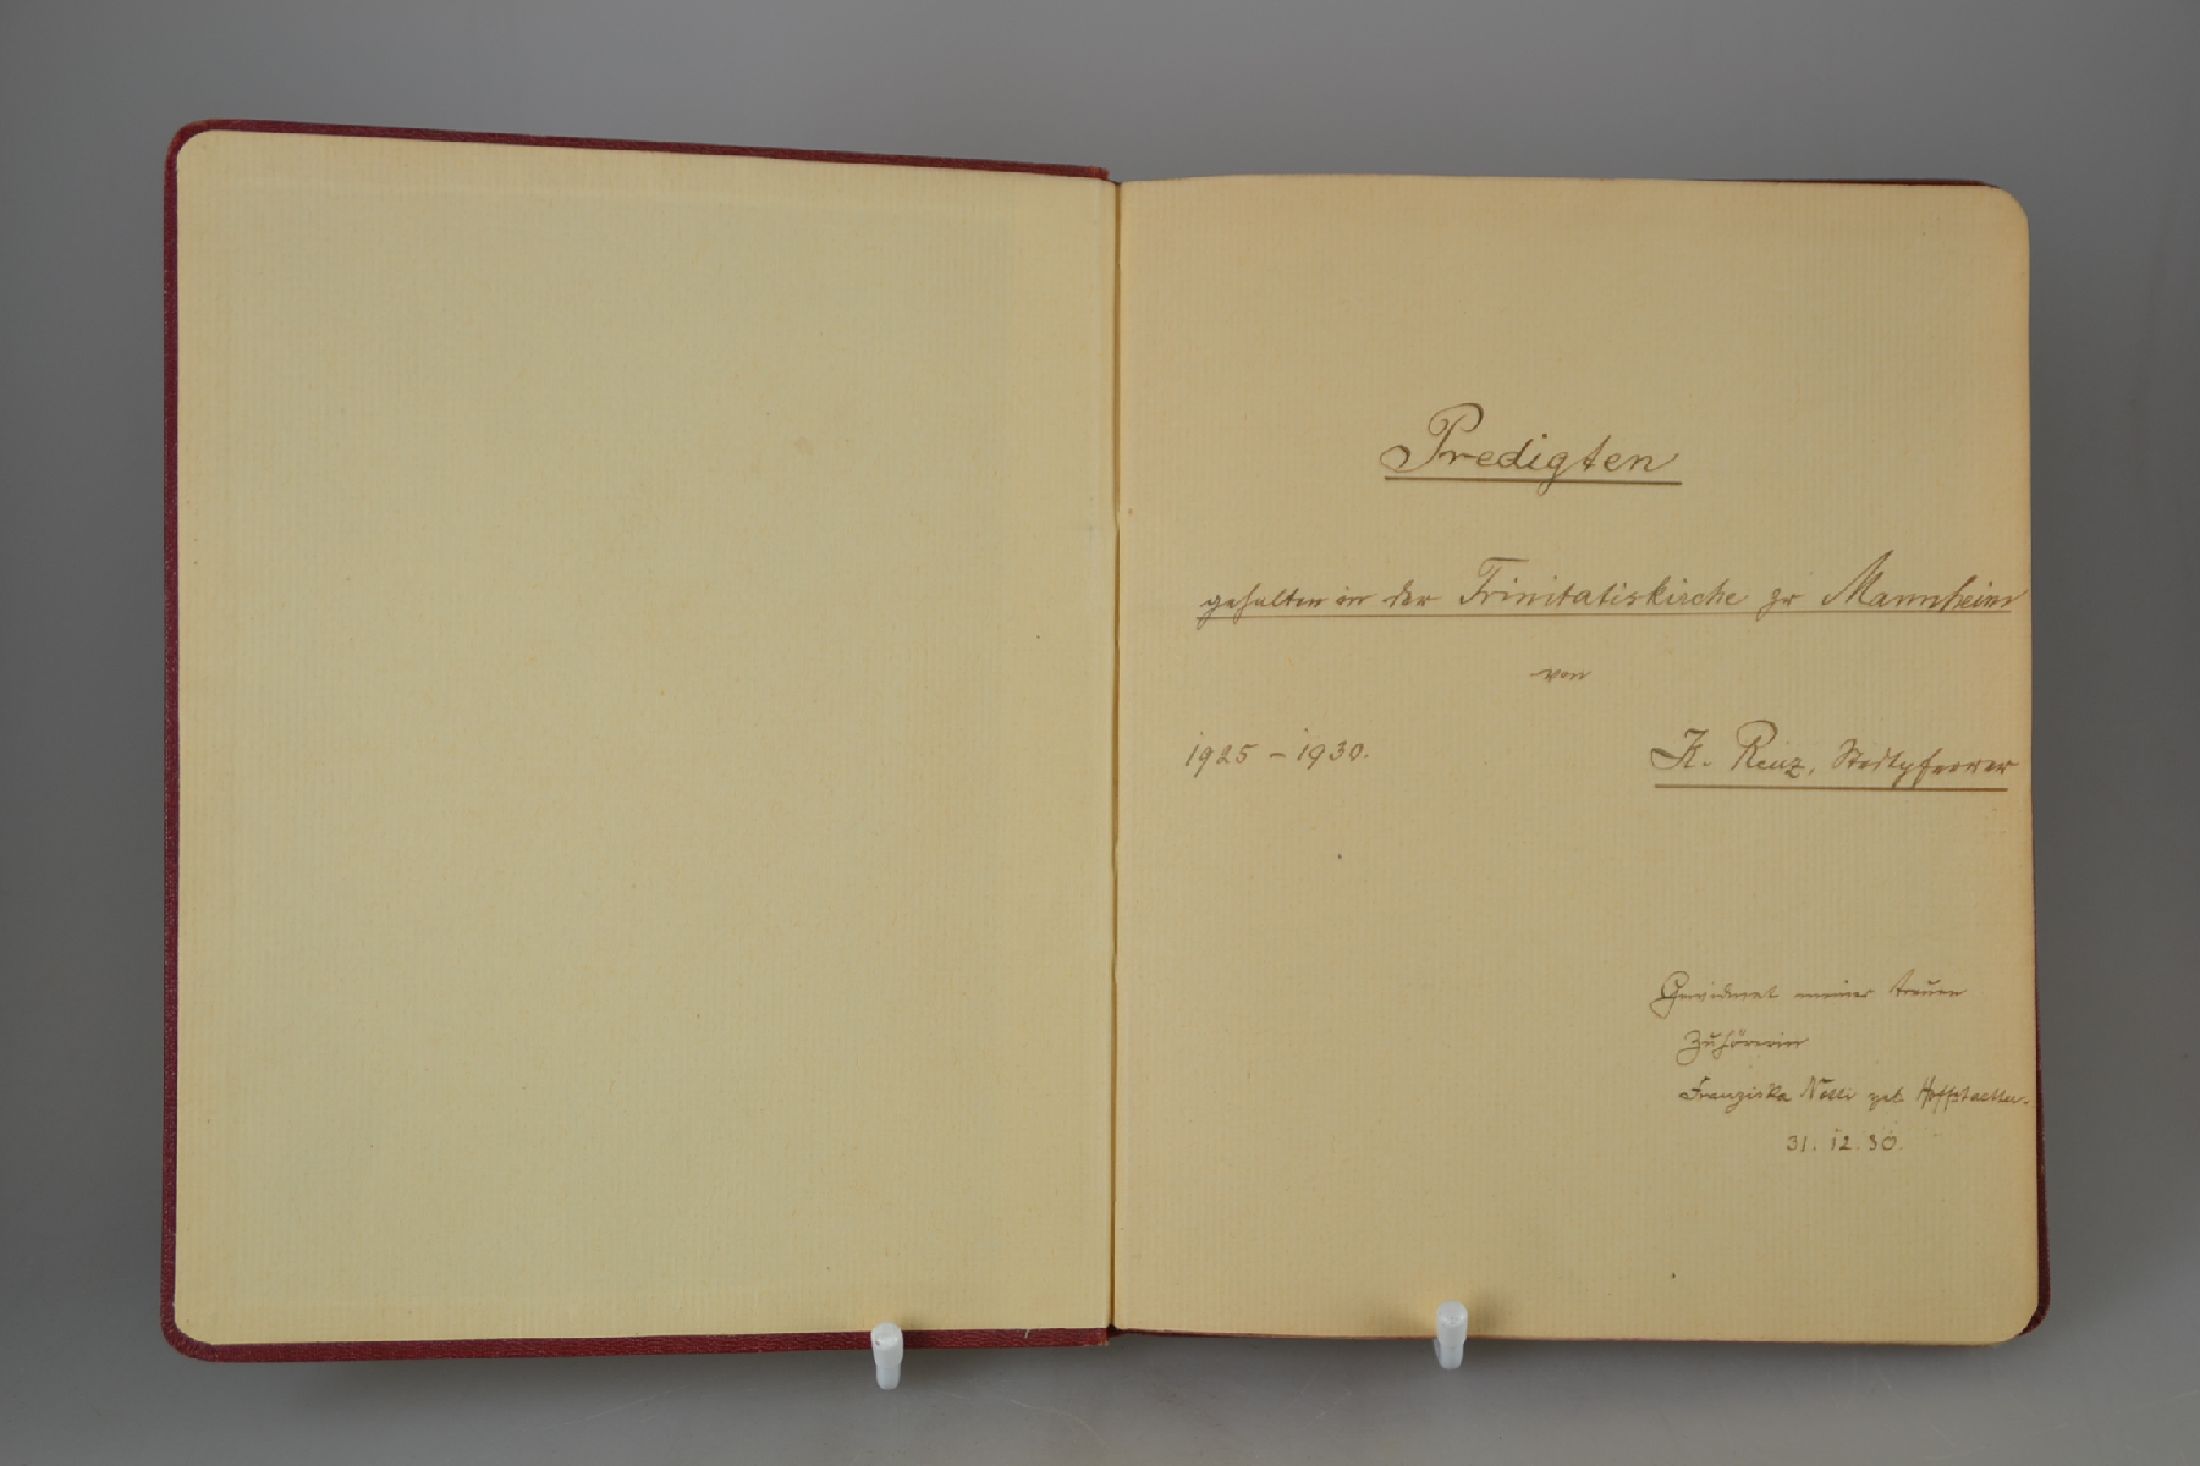 Predigten
gehalten in der Trinitatiskirche zu Mannheim
von
1925 – 1930.
K. Renz, Stadtpfarrer
Gewidmet meiner treuen
Zuhörerin
Franziska geb. Hoffstaetter.
31. 12. 30.